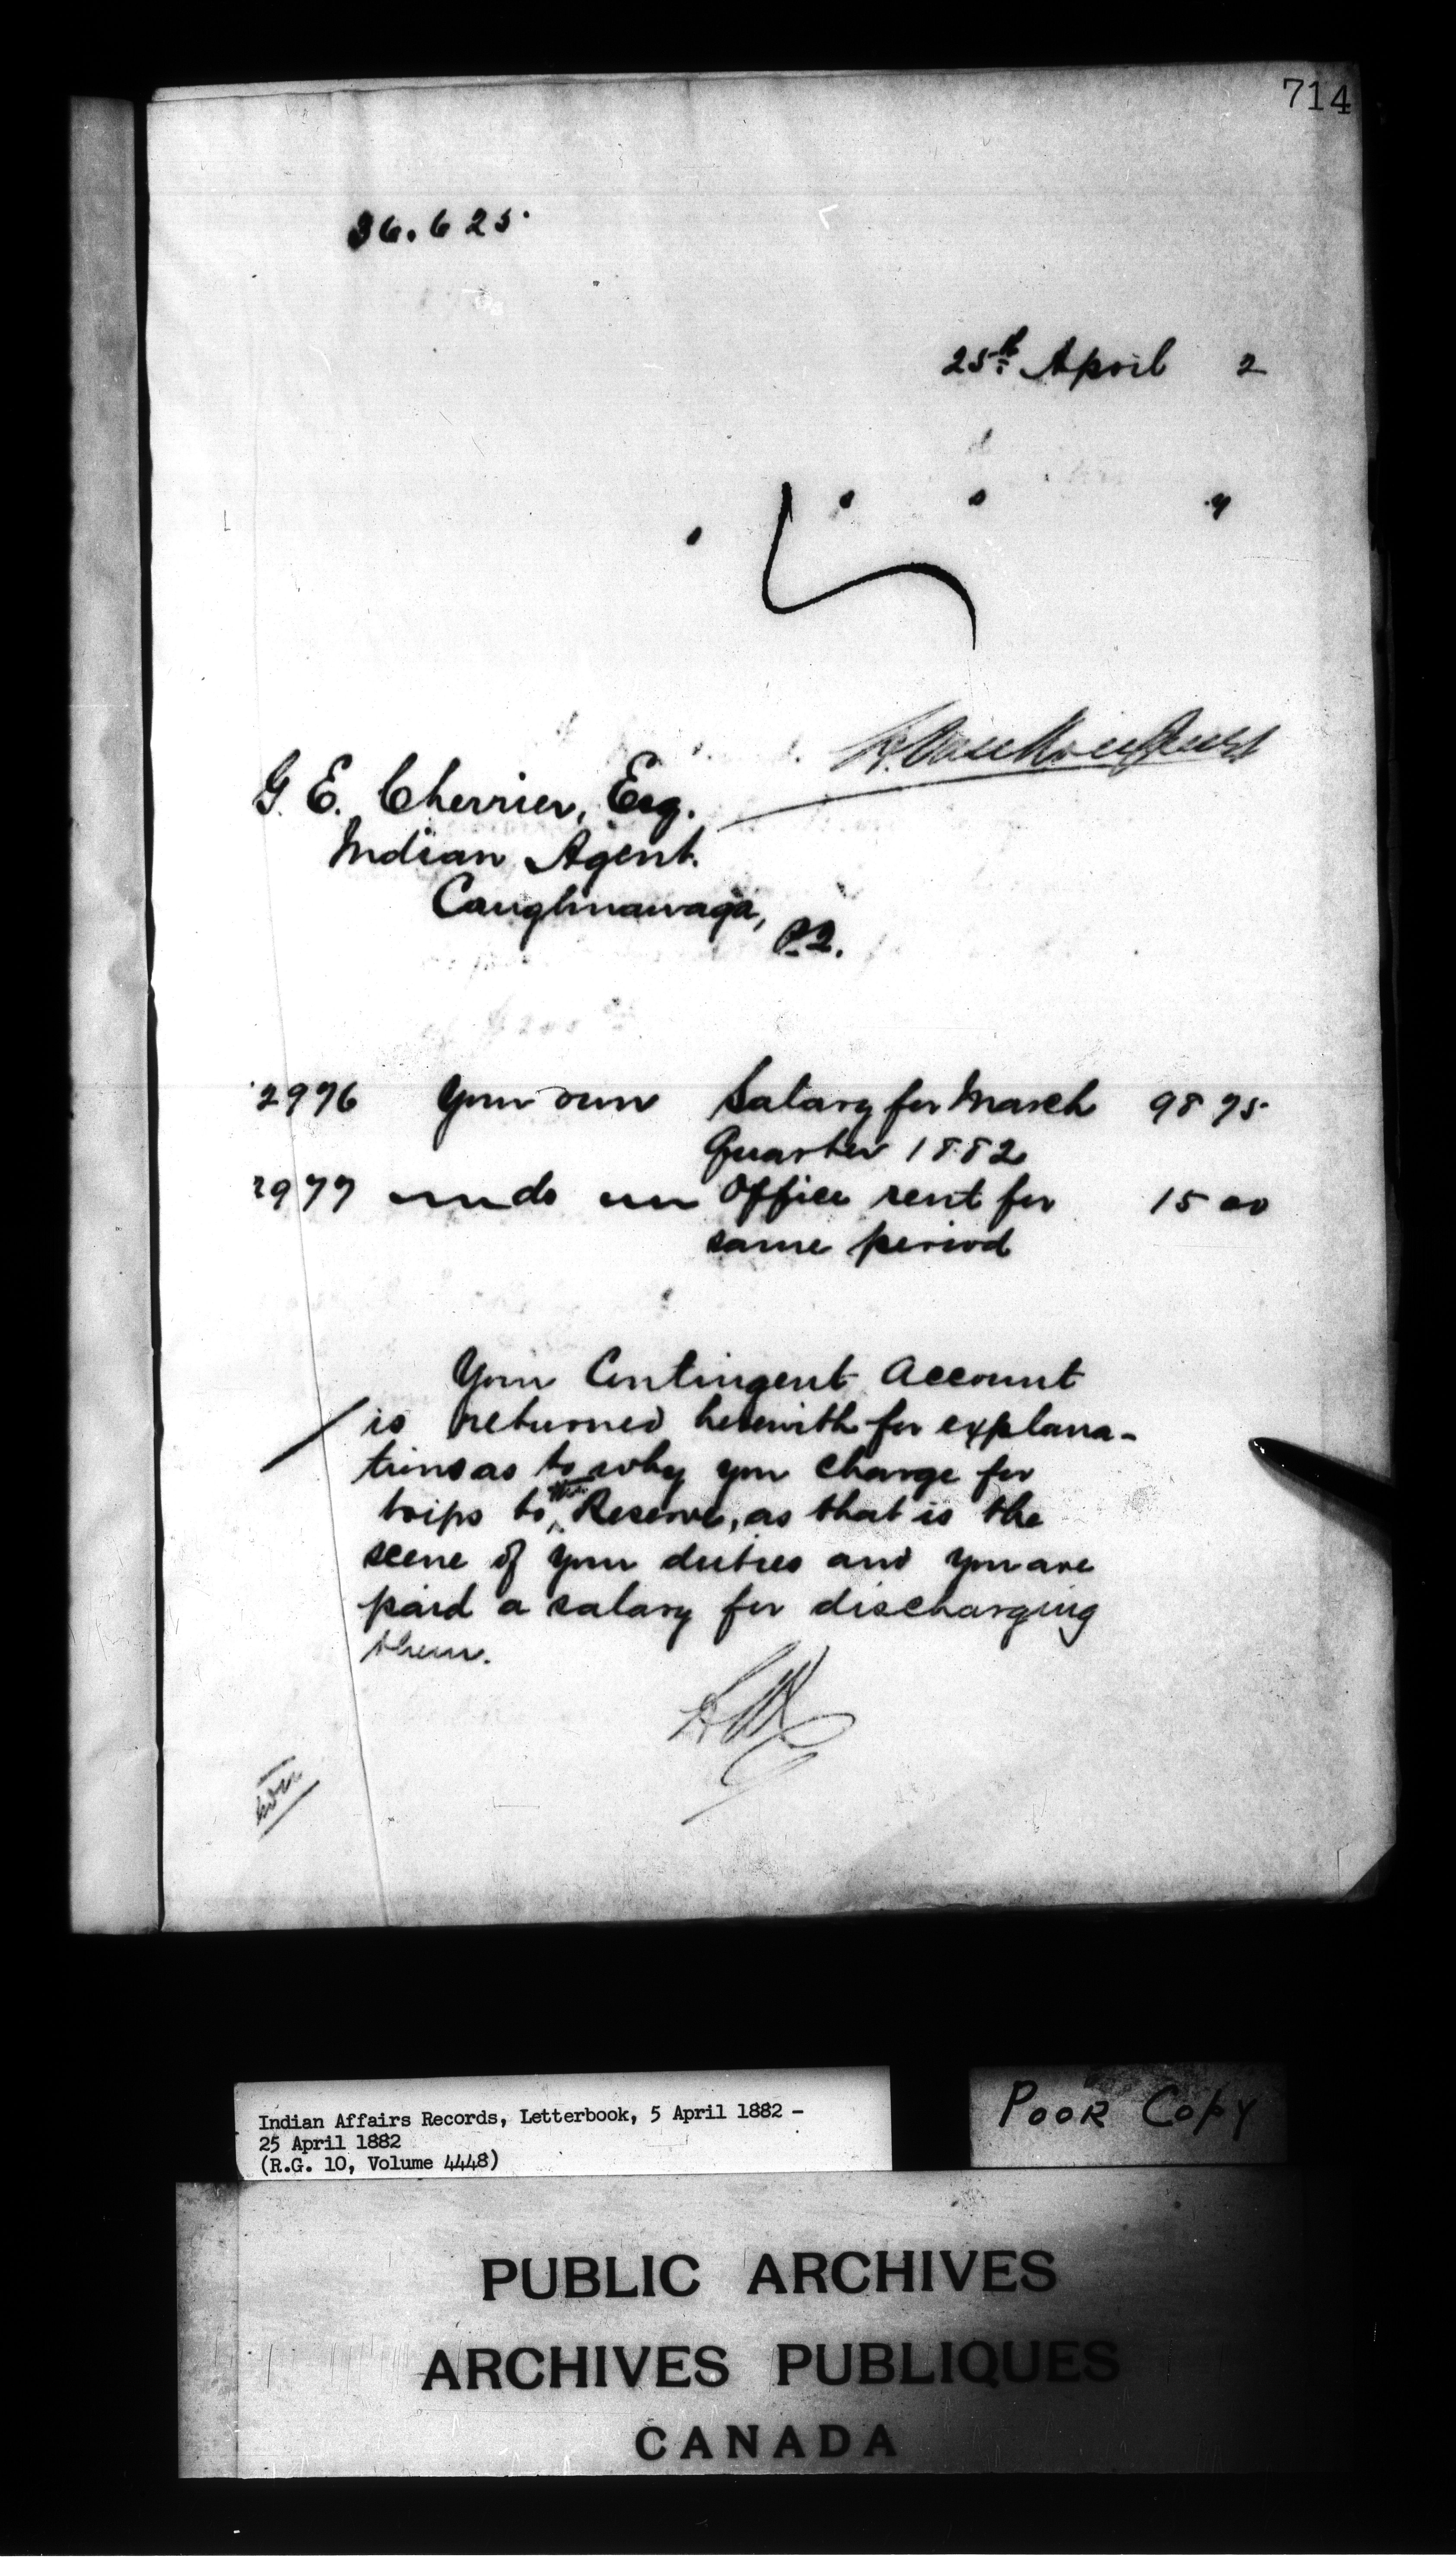 714
36.625
25th April 2
L. VanKoughnet
G. E. Cherrier, Esq.
Indian Agent.
Caughnawaga,
P.Q.
2976 Your own Salary for March 98 75
Quarter 1882
2977 do Office rent for 15 00
same period
Your Contingent Account
is returned herewith for explana-
tions as to why you charge for
trips to the Reserve, as that is the
scene of your duties and you are
paid a salary for discharging
them.
Indian Affairs Records, Letterbook, 5 April 1882 -
25 April 1882
(R.G. 10, Volume 4448)
POOR COPY
PUBLIC ARCHIVES
ARCHIVES PUBLIQUES
CANADA